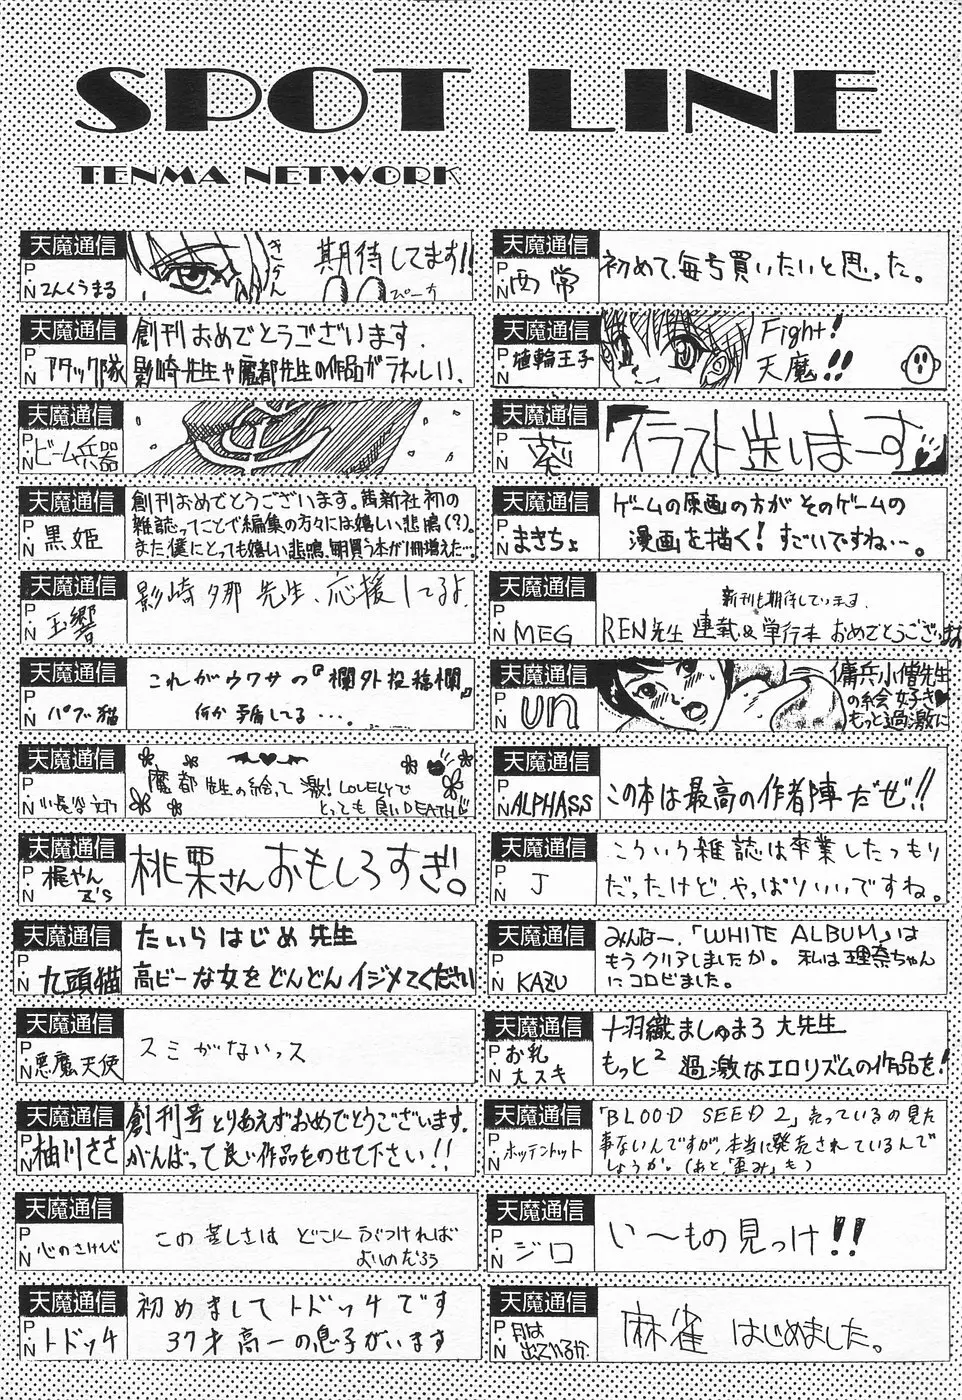 SPOT LINE
TENMA NETWORK
天魔通信
P・N てんくうまる
きかん
期待してます!!
ぴーち
天魔通信
P・N アタック隊
創刊おめでとうございます.
影崎先生や魔都先生の作品がうれしい.
天魔通信
P・N ビーム兵器
天魔通信
P・N 黒姫
創刊おめでとうございます。茜新社初の
雑誌ってことで編集の方々には嬉しい悲鳴(?)。
また僕にとっても嬉しい悲鳴、毎月買う本が1冊増えた…
天魔通信
P・N 玉響
影崎夕那 先生、応援してるよ.
天魔通信
P・N パブ猫
これがウワサの『欄外投稿欄』
何か矛盾してる・・・.
天魔通信
P・N 小長谷
魔都先生の絵って 激!LOVELYで
とっても良いDEATH!!
天魔通信
P・N 梶やんZ's
桃栗さんおもしろすぎ!。
天魔通信
P・N 九頭猫
たいらはじめ 先生
高ビーな女をどんどんイジメてください
天魔通信
P・N 悪魔天使
スミがないっス
天魔通信
P・N 柚川ささ
創刊号とりあえずおめでとうございます.
がんばって良い作品をのせて下さい!!
天魔通信
P・N 心のさけび
この苦しさは どこに ぶつければ
よいのだろう
天魔通信
P・N トドッチ
初めまして トドッチです
37才高一の息子がいます
天魔通信
P・N 西常
初めて、毎号買いたいと思った。
天魔通信
P・N 埴輪王子
Fight!
天魔!!
天魔通信
P・N 葵
イラスト送りまーす
天魔通信
P・N まきちょ
ゲームの原画の方がそのゲームの
漫画を描く!すごいですね…。
天魔通信
P・N MEG
新刊も期待しています.
REN先生 連載&単行本 おめでとうございます
天魔通信
P・N un
傭兵小僧先生
の絵好き♥
もっと過激に
天魔通信
P・N ALPHASS
この本は最高の作者陣だぜ!!
天魔通信
P・N J
こういう雑誌は卒業したつもり
だったけど、やっぱりいいですね。
天魔通信
P・N KAZU
みんなー、「WHITE ALBUM」は
もうクリアしましたか。私は理奈ちゃん
にコロビました。
天魔通信
P・N お乳大スキ
十羽織ましゅまろ 大先生
もっと2 過激なエロリズムの作品を!
天魔通信
P・N ホッテントット
「BLOOD SEED 2」売っているの見た
事ないんですが、本当に発売されているんで
しょうか。(あと「歪み」も)
天魔通信
P・N ジロ
い〜もの見っけ!!
天魔通信
P・N 月は出ているか
麻雀はじめました。